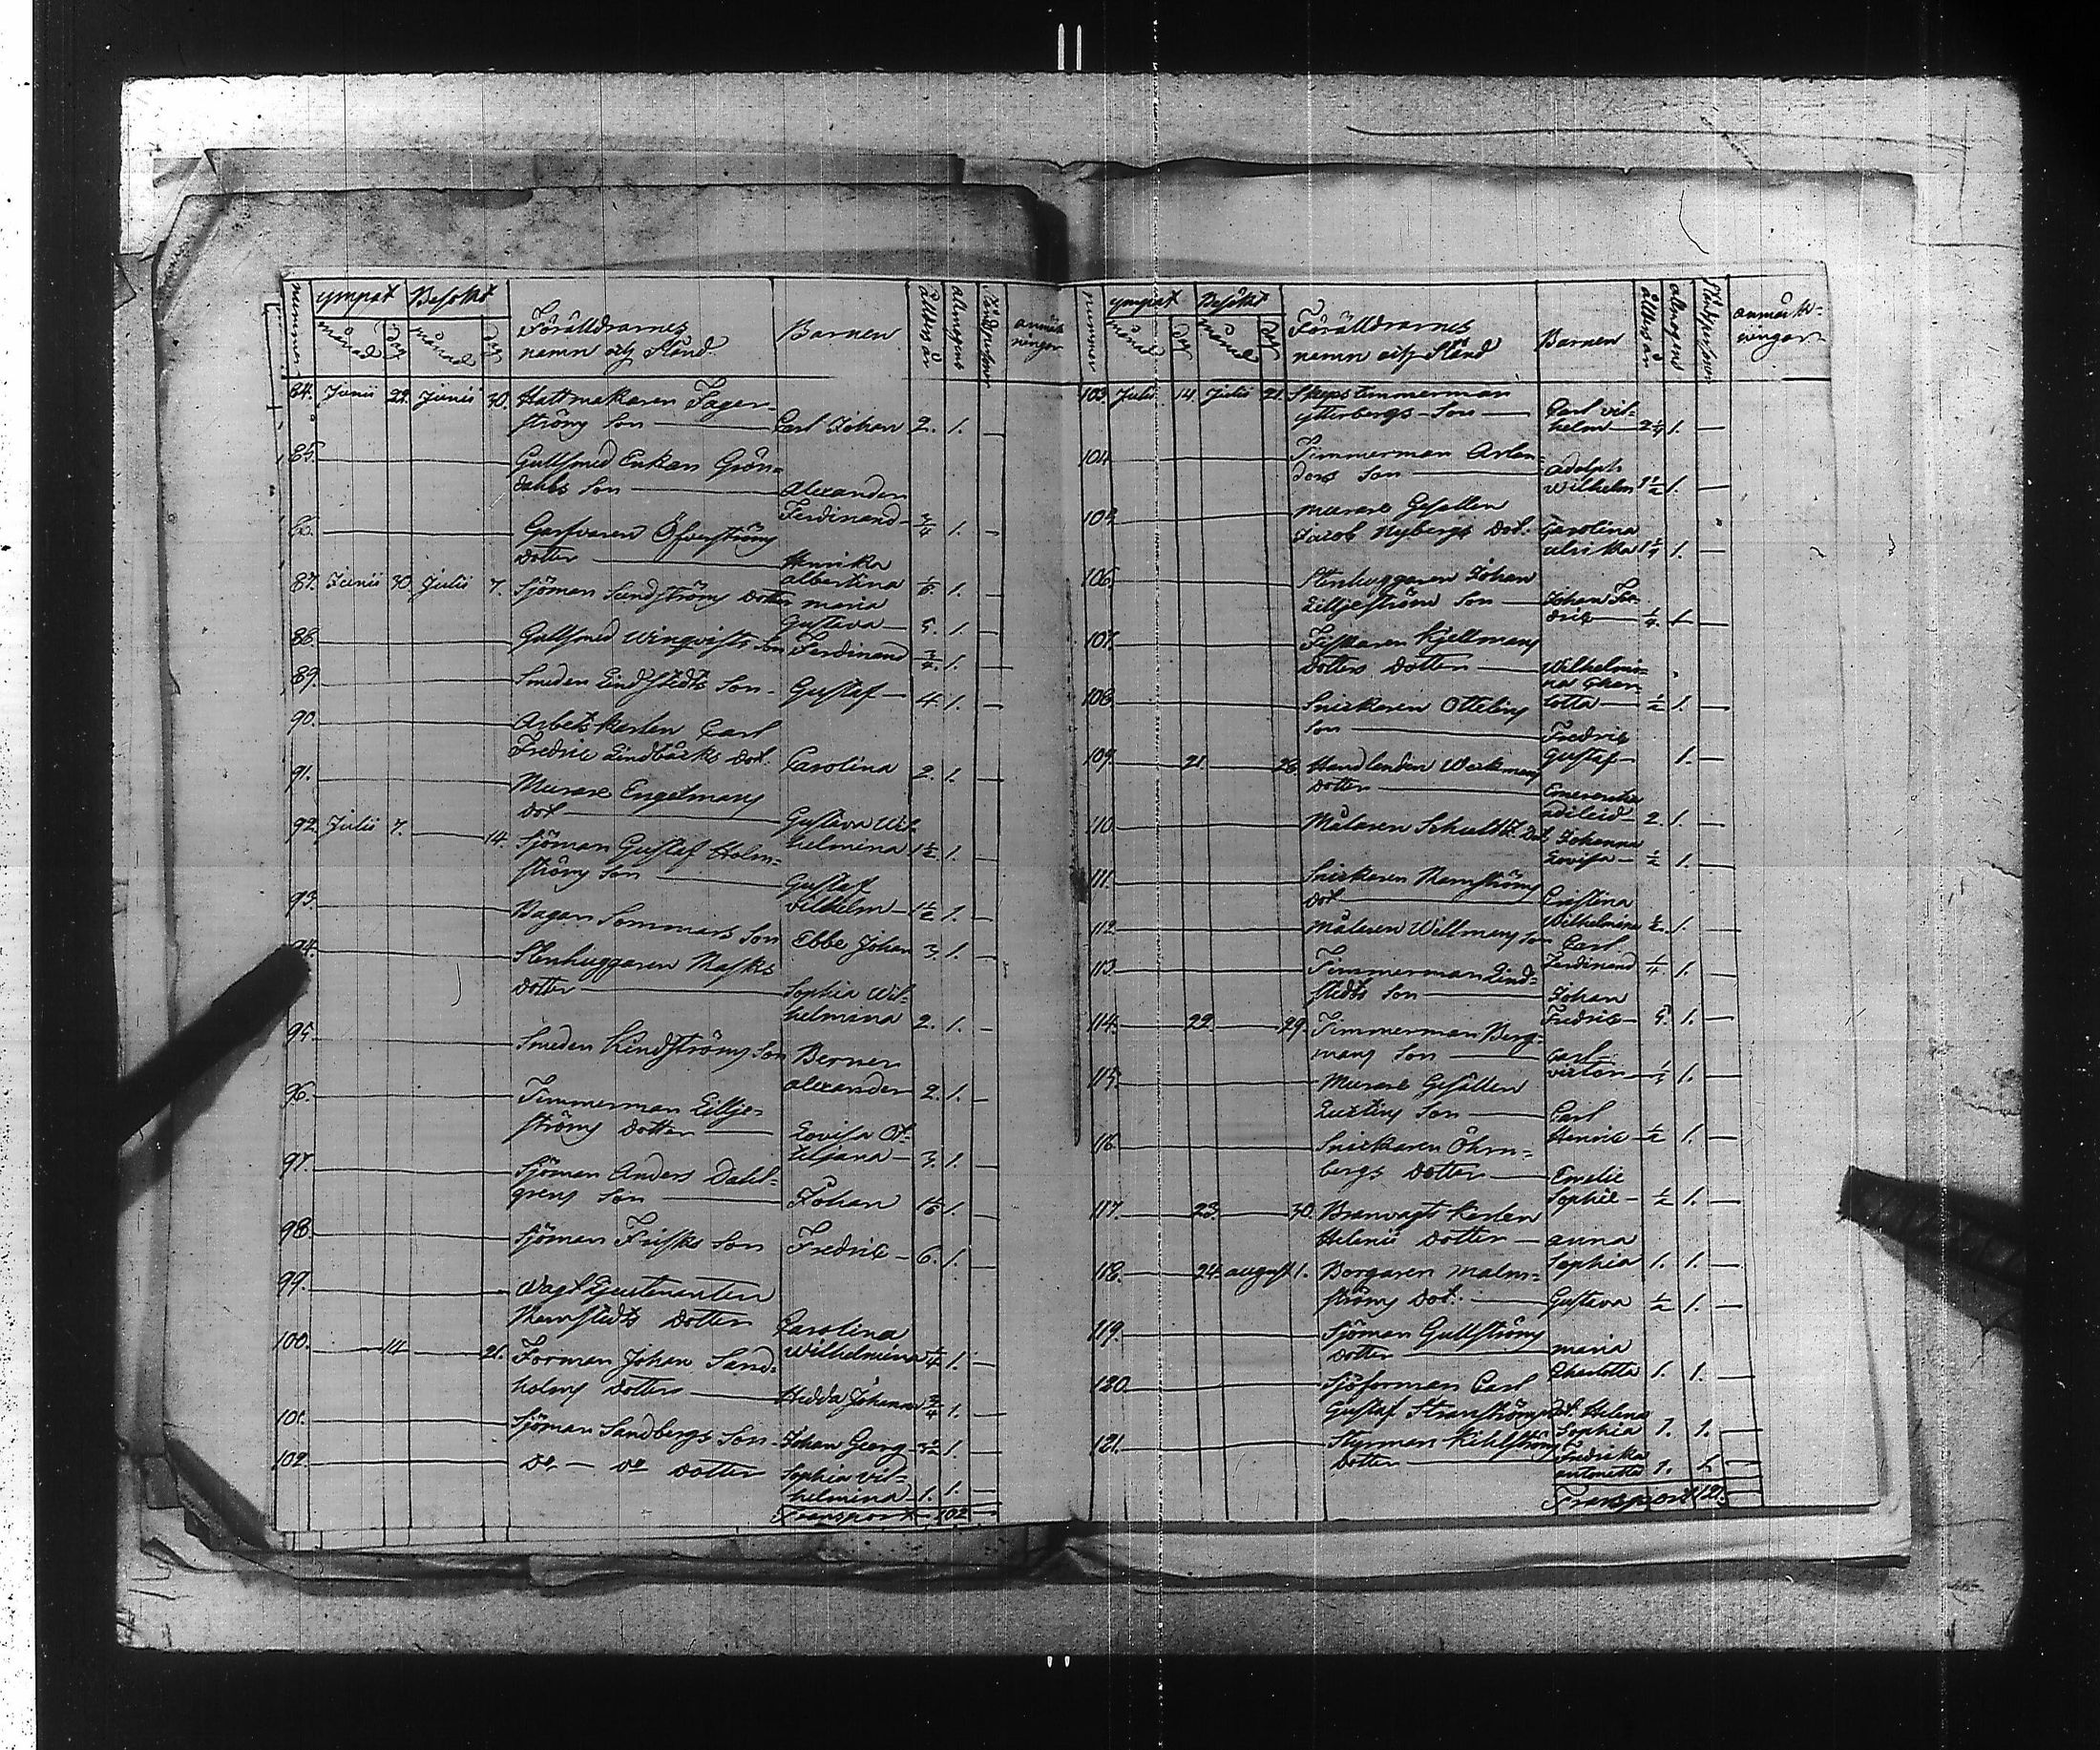 nummer ympat Besökt Föräldrarnes Barnen ållders år allmogens Ståndspersoner anmärk-
månad dag månad dag namn och Stånd ningar
84. Junii 22. Junii 30. Hattmakaren Fager-
ströms Son Carl Johan 2. 1. —
85. Gullsmed Enkans Grön-
dahls Son Alexander
Ferdinand 3/4 1. —
86. Garfvaren Öfverströms
Dotter Henrika
albertina 1. —
87. Junii 30. Julii 7. Sjöman Sundströms Dotter maria
Gustava 5. 1. —
88. Gullsmed Winqvists Son Ferdinand 3/4 1. —
89. Smeden Lindstedts Son Gustaf 4. 1. —
90. Arbets karlen Carl
Fredric Lindbäcks Dot. Carolina 2. 1. —
91. Murare Engelmans
Dot Gustava Wil-
helmina 1 1/2 1. —
92. Julii 7. 14. Sjöman Gustaf Holm-
ströms Son Gustaf
Vilhelm 1 1/2 1. —
93. Bagar Sommars Son Ebbe Johan 3. 1. —
94. Stenhuggaren Masks
Dotter Sophia Wil-
helmina 2. 1. —
95. Smeden Lindströms Son Berner
alexander 2. 1. —
96. Timmerman Lillje-
ströms Dotter Lovisa Ot-
teljana 3. 1. —
97. Sjöman Anders Dahl-
grens Son Johan 1. —
98. Sjöman Frisks Son Fredric 6. 1. —
99. Vagt
Dotter Carolina
Wilhelmina 1. —
100. 14 21. Forman Johan Sand-
holms Dotter Hedda Johanna 3/4 1. —
101. Sjöman Sandbergs Son Johan Georg 3 1/2 1. —
102. Do — Do Dotter Sophia Vil-
helmina 1. 1. —
Transport 102 —
nummer ympat Besökt Föräldrarnes Barnen ållders år allmogens Ståndspersoner anmärk-
månad dag månad dag namn och Stånd ningar
103. Julii 14. Julii 21. Skeps timmerman
ytterbergs Son Carl vil-
helm 2 1/4 1. —
104. Timmerman Arlan-
ders Son Adolph
Wilhelm 1 1/2 1. —
105. Murare Gesellen
Jacob Nybergs Dot. Carolina
ulrika 1 1/4 1. —
106. Stenhuggaren Johan
Lilljeström Son Johan Fre-
dric 1/4 1. —
107. Fiskaren Kjellmans
Dotters Dotter Wilhelmi-
na Char-
lotta 1/2 1. —
108. Snickaren Ottelins
Son Fredric
Gustaf 1. —
109. 21. 28. Handlanden Werkmans
Dotter Emerentia
adileid 2. 1. —
110. Målaren Schultz Dot. Johanna
Lovisa 1/2 1. —
111. Snickaren
Dot Cristina
Wilhelmina 1/2 1. —
112. Målaren Willmans Son Carl
Ferdinand 1/4 1. —
113. Timmerman Lind-
stedts Son Johan
Fredric 5. 1. —
114. 22. 29. Timmerman Berg-
mans Son Carl
victor 1. —
115. Murare Gesällen
Son Carl
Henric 1/2 1. —
116. Snickaren Öhrn-
bergs Dotter Emelie
Sophie 1/2 1. —
117. 23. 30. Branvagts karlen
Helenii Dotter anna
Sophia 1. 1. —
118. 24. august 1. Borgaren Malm-
ströms Dot. Gustava 1/2 1. —
119. Sjöman Gullströms
Dotter maria
Charlotta 1. 1. —
120. Sjöforman Carl
Gustaf Stranströms Dot. Helena
Sophia 1. 1. —
121. Styrman Kihlströms
Dotter Fredricka
antonetta 1. 1. —
Transport 121. —